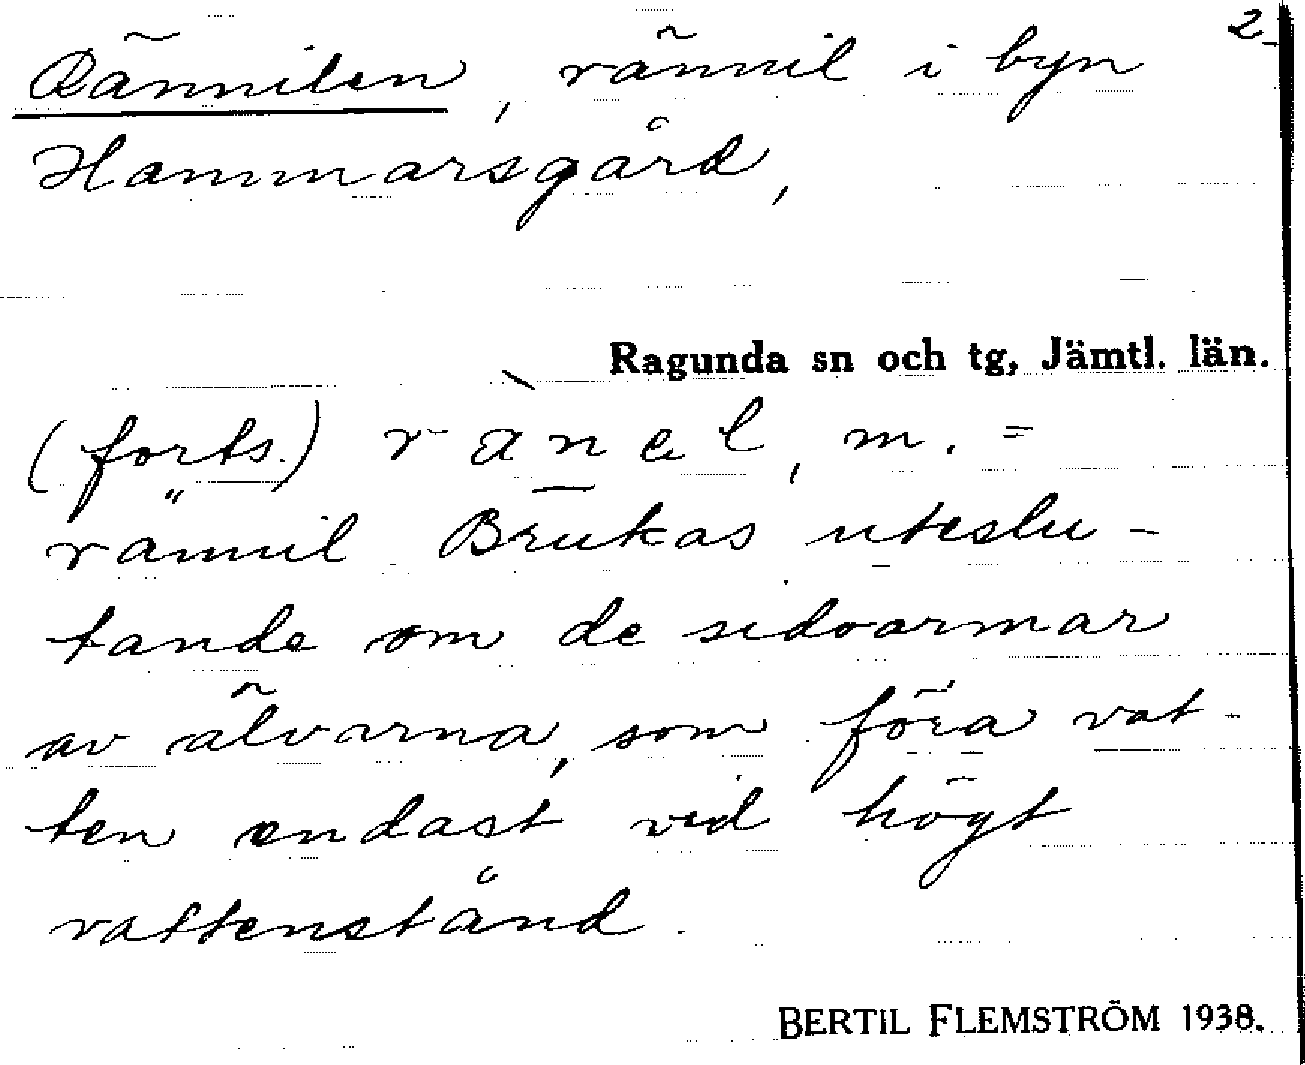 2
Rännilen, rännil i byn
Hammarsgård,
Ragunda sn och tg, Jämtl. län.
(forts.) rànel, m. =
rännil Brukas uteslu-
tande om de sidoarmar
av älvarna, som föra vat-
ten endast vid högt
vattenstånd.
BERTIL FLEMSTRÖM 1938.